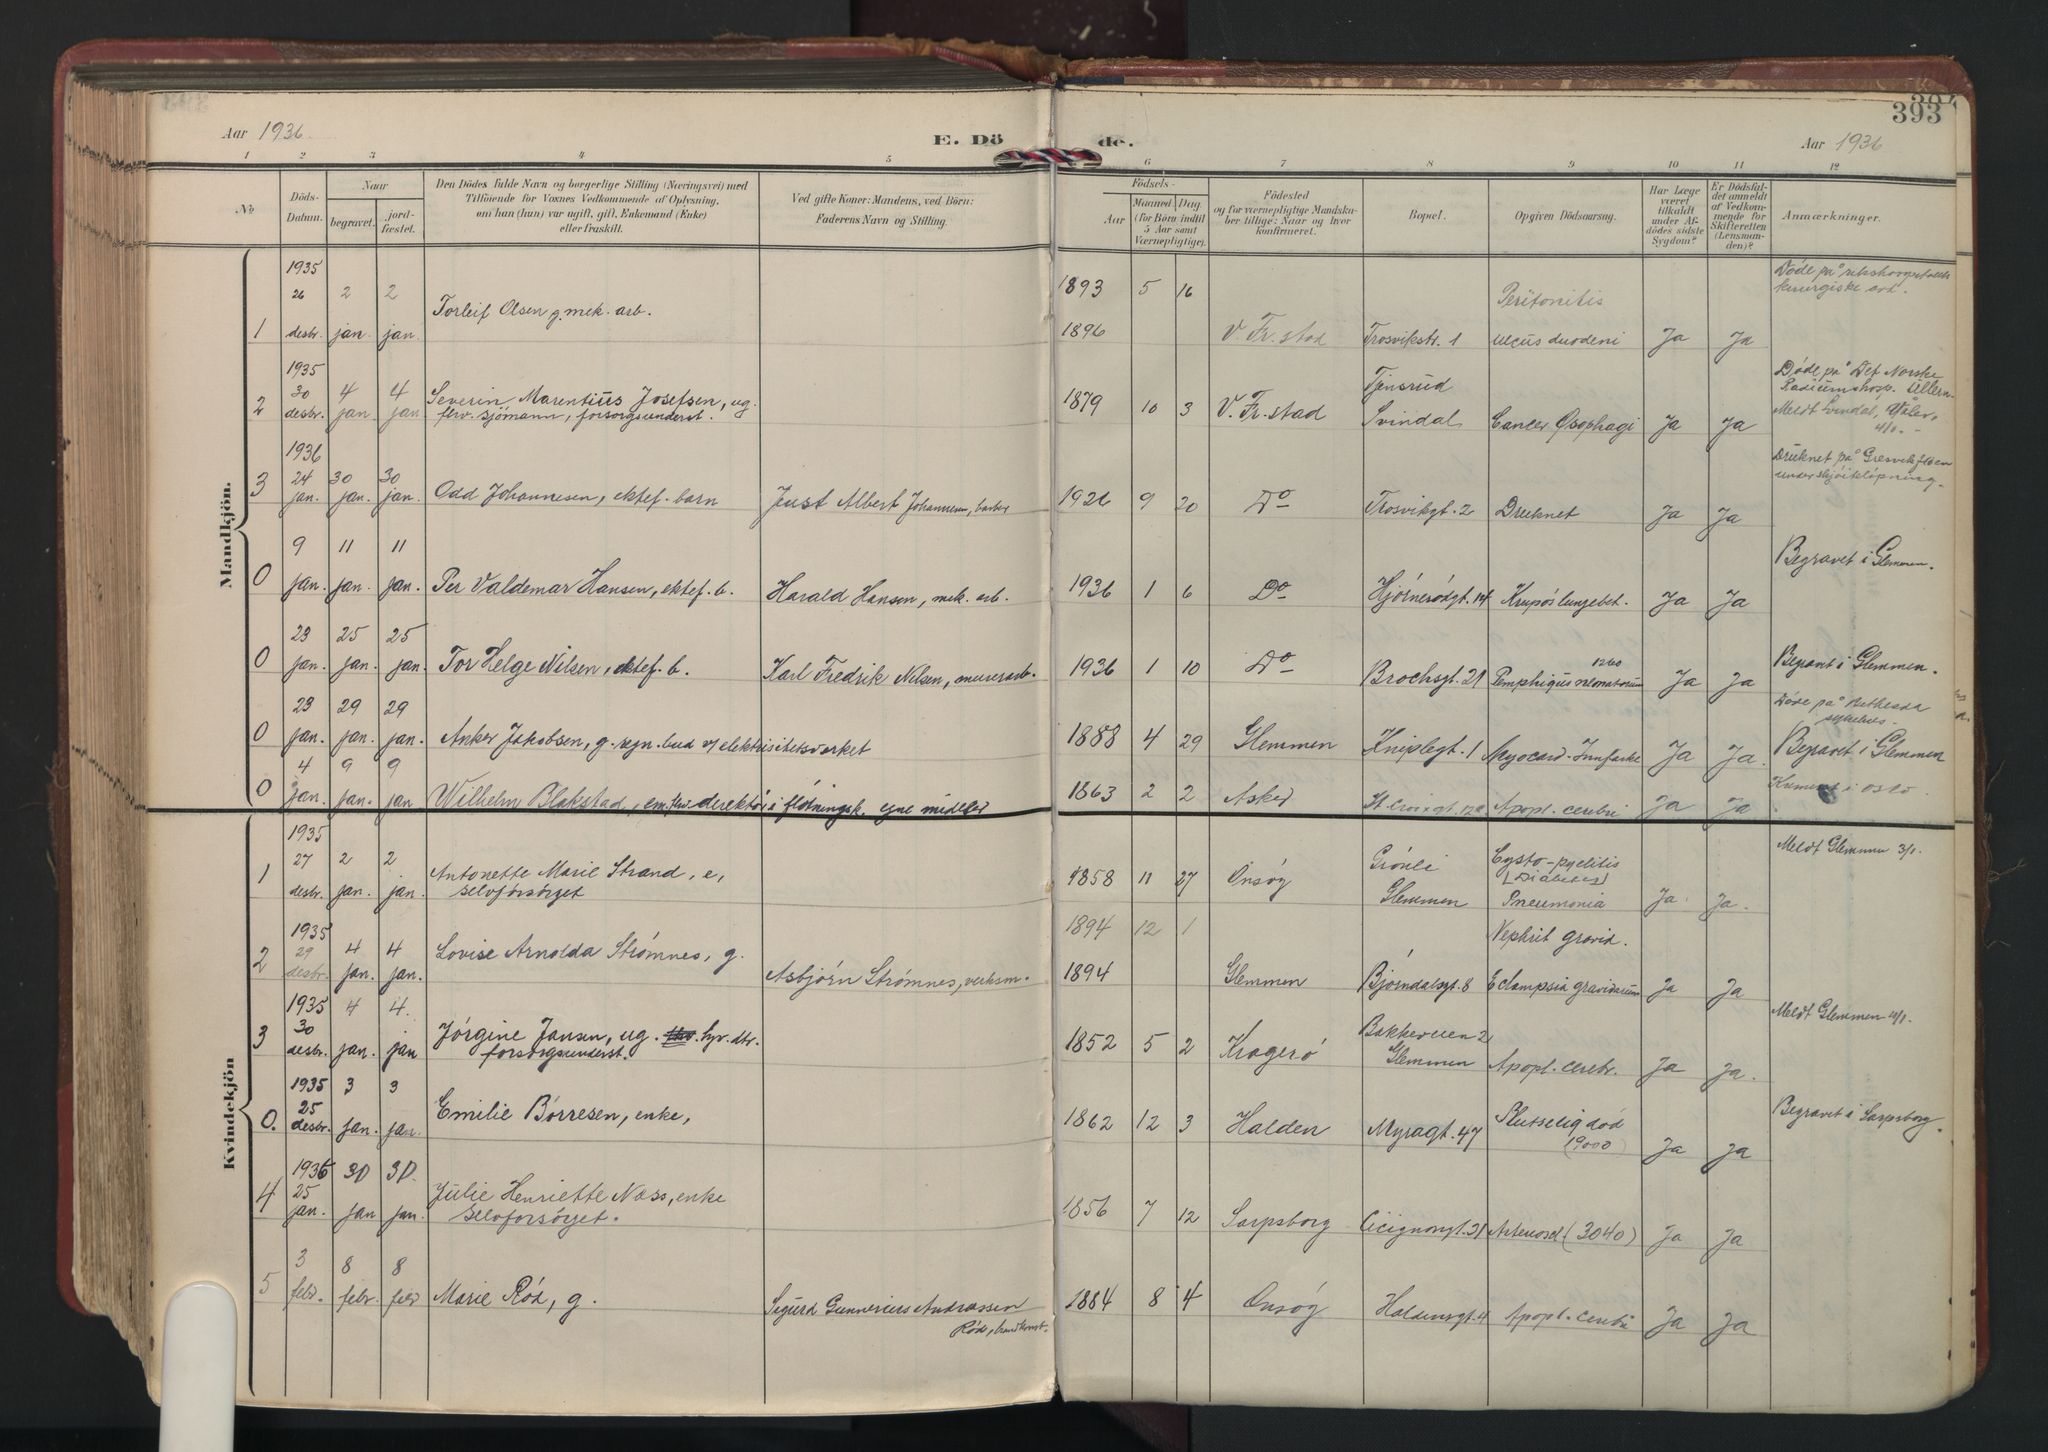 393
Aar 1936.
E. Dö de.
Aar 1936
1 2 3 4 5 6 7 8 9 10 11 12
No
Döds-Datum.
Naar
begravet.
jord-fæstet.
Den Dödes fulde Navn og borgerlige Stilling (Næringsvei) med
Tilföiende for Voxnes Vedkommende af Oplysning,
om han (hun) var ugift, gift, Enkemand (Enke)
eller fraskilt.
Ved gifte Koner: Mandens, ved Börn:
Faderens Navn og Stilling.
Födsels-
Aar
Maaned
Dag.
(for Börn indtil
5 Aar samt
Værnepligtige).
Födested
og for værnepligtige Mandska-
ber tillige: Naar og hvor
konfirmeret.
Bopæl.
Opgiven Dödsaarsag.
Har Læge
været
tilkaldt
under Af-
dödes sidste
Sygdom?
Er Dödsfal-
det anmeldt
af Vedkom-
mende for
Skifteretten
(Lensman-
den)?
Anmærkninger.
Mandkjön.
1 1935 26 desbr. 2 jan. 2 jan. Torleif Olsen g. mek. arb. 1893 5 16
1896 V. Fr.stad Trosvikstr. 1 Peritonitis ulcus duodeni Ja Ja Døde på kirurgiske avd.
2 1935 30 desbr. 4 jan 4 jan Severin Marentius Josefsen, ug.
frv. sjömann, forsorgsunderst. 1879 10 3 V. Fr.stad Svindal Cancer Øsophagi Ja Ja Døde på Det Norske
Radiumshosp. Ullern
Meldt Svindal, Våler,
3 1936 24 jan. 30 jan. 30 jan. Odd Johannesen, ektef. barn Just Albert Johannesen, barber 1926 9 20 Do Trosvikgt. 2 Druknet Ja Ja Druknet på Gresvik
under skøiteløpning.
0 9 jan. 11 jan. 11 jan. Per Valdemar Hansen, ektef. b. Harald Hansen, mek. arb. 1936 1 6 Do Hjörnerödgt. 14 Krupøs lungebet. Ja Ja Begravet i Glemmen.
0 23 jan. 25 jan. 25 jan. Tor Helge Nilsen, ektef. b. Karl Fredrik Nilsen, murerarb. 1936 1 10 Do Brochsgt. 21 Pemphigus neonatorum 1260 Ja Ja Begravet i Glemmen.
0 23 jan. 29 jan. 29 jan. Anker Jakobsen, g. regn. bud v/ elektrisitetsverket 1888 4 29 Glemmen Kniplegt. 1 Myocard-Innfarkt Ja Ja. Døde på Bethesda
sykehus.
Begravet i Glemmen
0 4 jan. 9 jan. 9 jan Wilhelm Blakstad, em. frv. direktör i flötningsk. egne midler 1863 2 2 Asker St. Croixgt. Apopl. cerebri Ja Ja Kremert i Oslo.
Kvindekjön
1 1935 27 desbr. 2 jan. 2 jan. Antonette Marie Strand, e,
selvforsörget 1858 11 27 Onsøy Grönli
Glemmen Cysto-pyelitis
(Diabetes)
Pneumonia Ja. Ja. Meldt Glemmen 3/1.
2 1935 29 desbr. 4 jan. 4 jan. Lovise Arnolda Strömnes, g. Asbjörn Strömnes, verksm. 1894 12 1
1894 Glemmen Bjørndalsgt. 8 Nephrit gravid.
Eclampsia gravidarum Ja Ja
3 1935 30 desbr. 4 jan. 4. jan Jörgine Jansen, ug. hjv. dtr.
forsorgsunderst. 1852 5 2 Kragerö Bakkeveien 2
Glemmen Apopl. cerebr. Ja Ja. Meldt Glemmen
0. 1935 25 desbr. 3 jan. 3 jan. Emilie Börresen, enke, 1862 12 3 Halden Myragt. 47 Plutselig död
(9000) Ja Ja Begravet i Sarpsborg.
4 1936 25 jan. 30 jan 30. jan. Julie Henriette Næss, enke
selvforsörget. 1856 7 12 Sarpsborg Cicignongt. 31 Arterioscl (3040) Ja Ja
5 3 febr. 8 febr. 8 febr Marie Röd, g. Sigurd Gunnerius Andreassen
Röd, brandkonst. 1884 8 4 Onsøy Haldensgt. 4 Apopl. cerebri Ja Ja